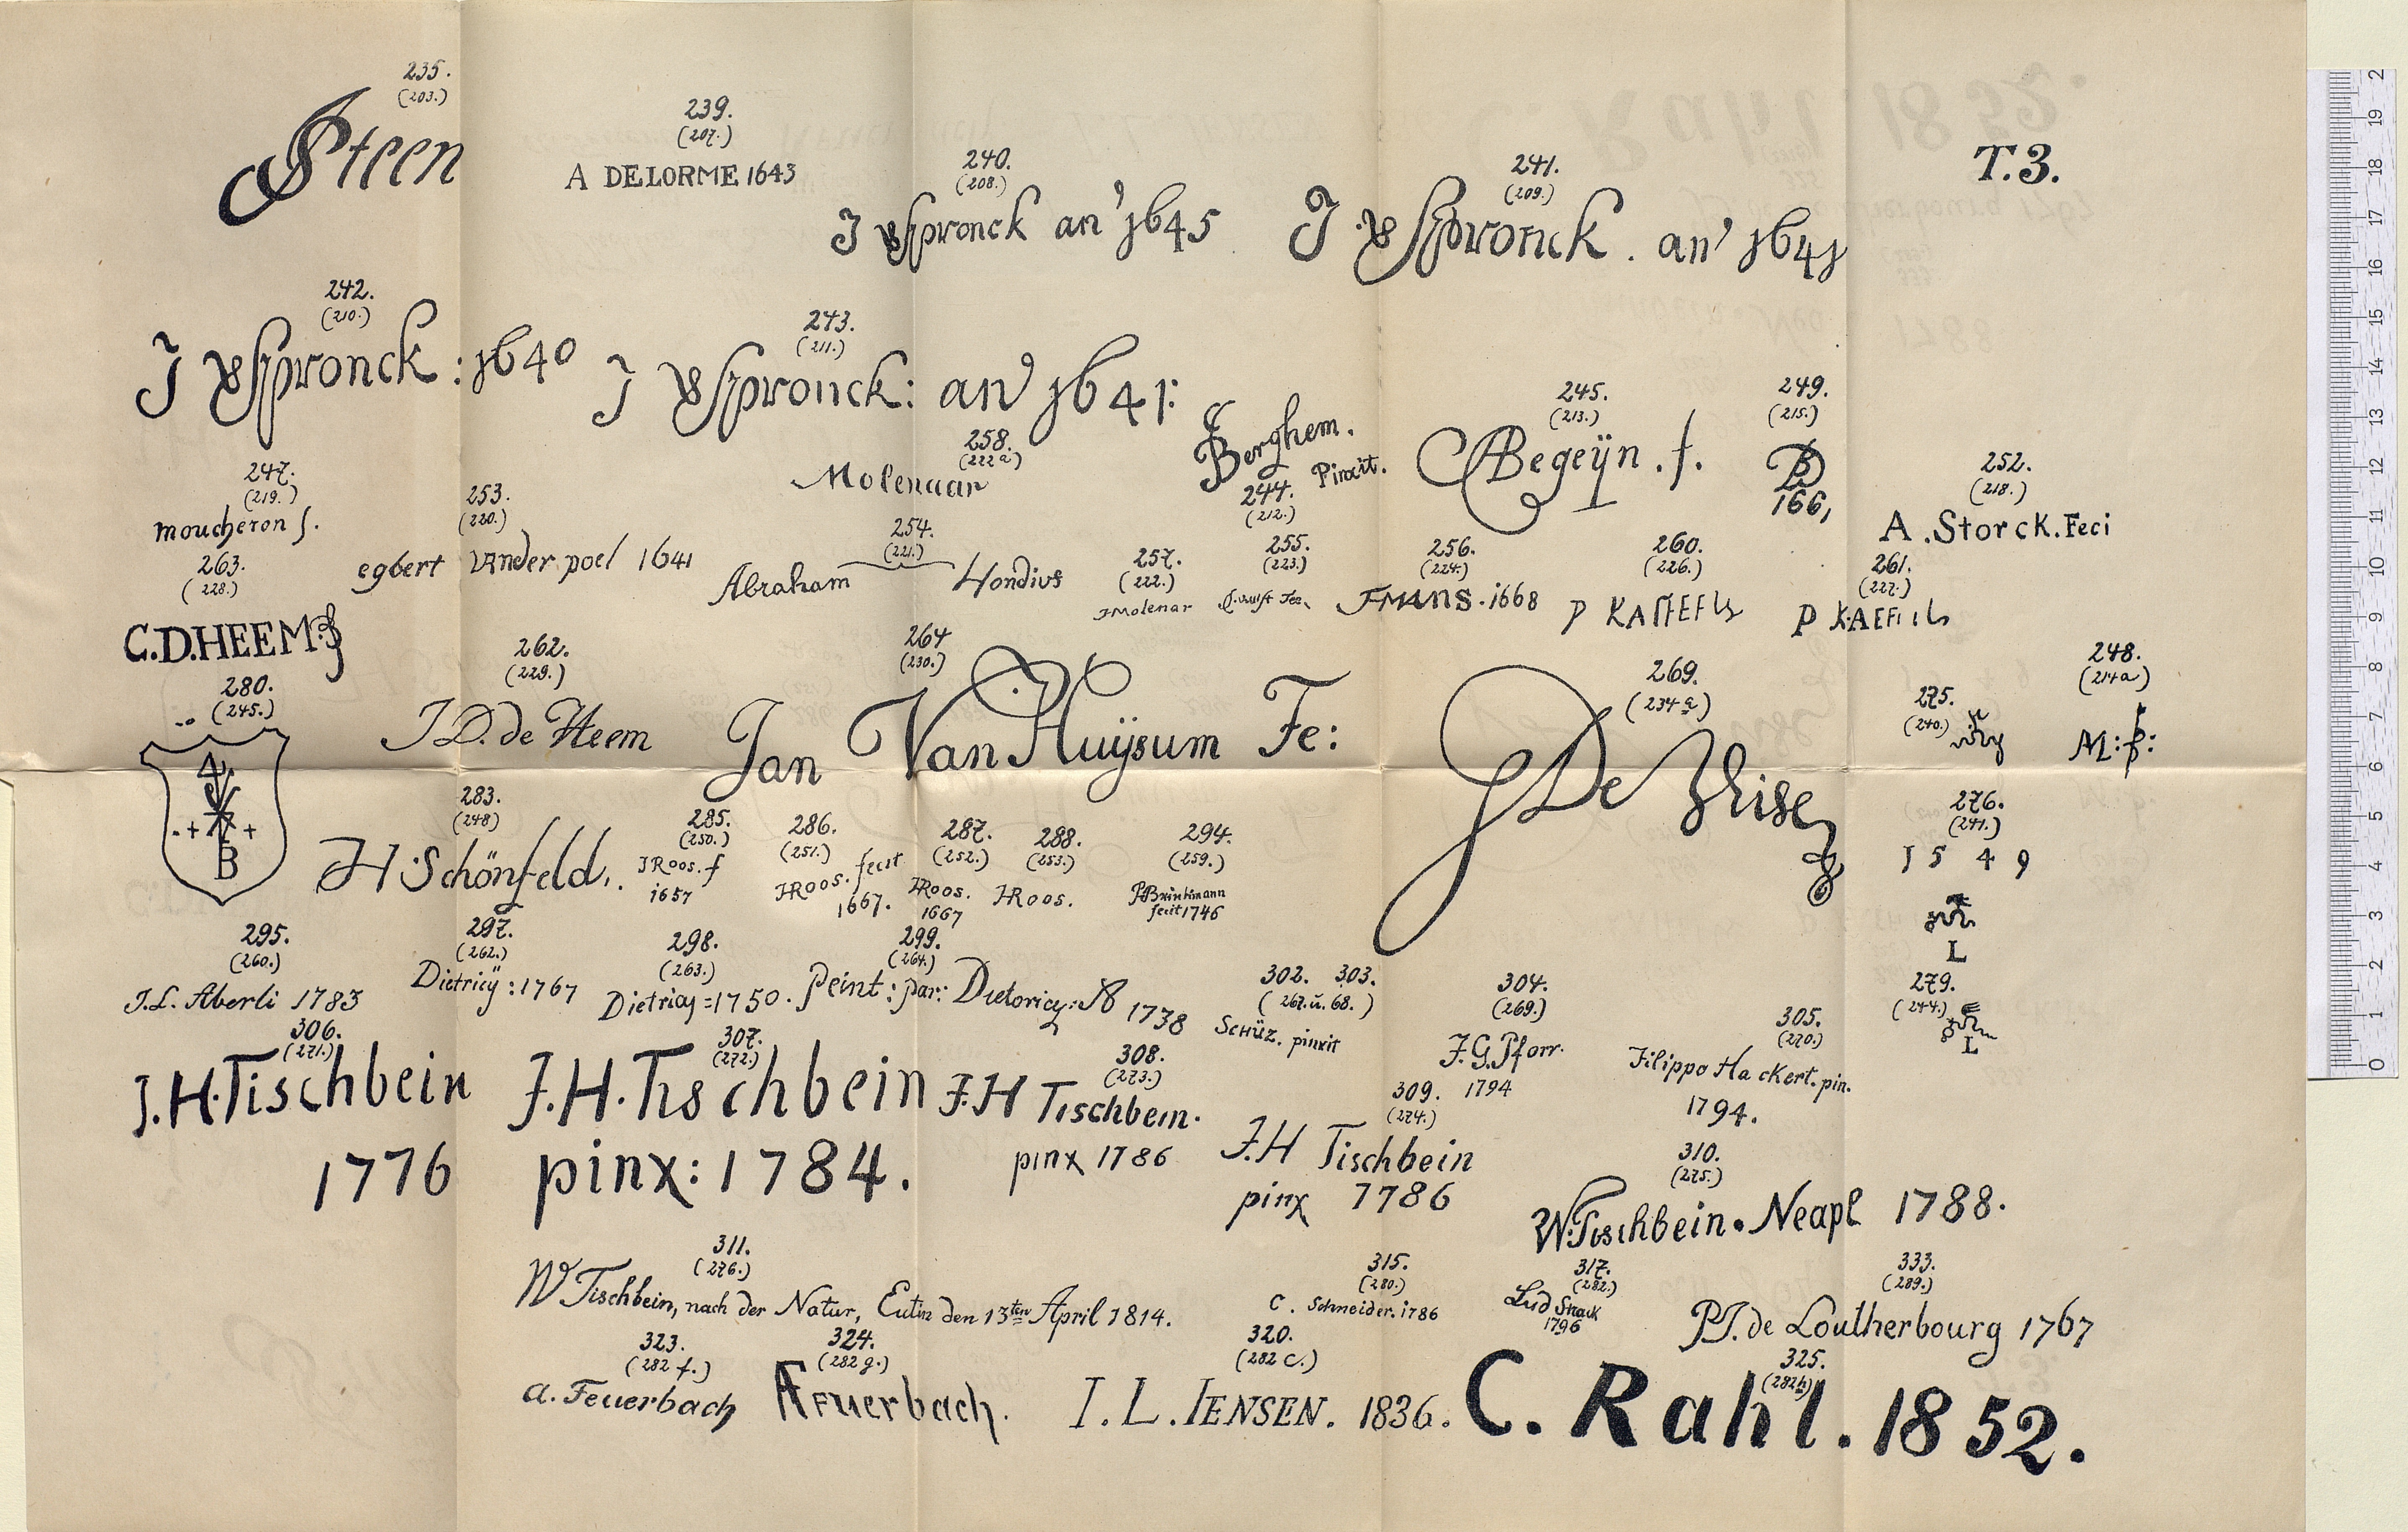 235.
(203.)
JSteen
239.
(207.)
A DELORME 1643
240.
(208.)
J VSpronck an° 1645
241.
(209.)
J. VSpronck. an° 1641
T.3.
242.
(210.)
J VSpronck: 1640
243.
(211.)
J VSpronck: an° 1641:
Berghem.
Pinxit.
244.
(212.)
245.
(213.)
CABegeÿn. f.
249.
(215.)
166,
247.
(219.)
moucheron f.
258.
(222 a)
Molenaar
252.
(218.)
A. Storck. Feci
253.
(220.)
egbert vander poel 1641
254.
(221.)
Abraham Hondius
257.
(222.)
JMolenar
255.
(223.)
256.
(224.)
FMANS. 1668
260.
(226.)
P KAFFEELS
261.
(227.)
263.
(228.)
C.D.HEEM
262.
(229.)
J D. de Heem
264
(230.)
Jan Van Huÿsum Fe:
269.
(234 a)
JDe Wise
275.
(240.)
248.
(214 a)
M:P:
280.
(245.)
4
B
283.
(248)
JH. Schönfeld.
285.
(250.)
JRoos. f
1657
286.
(251.)
JHRoos. fecit
1667.
287.
(252.)
JHRoos.
1667
288.
(253.)
JHRoos.
294.
(259.)
PhBrinkmann
fecit 1746
276.
(241.)
1 5 4 9
L
295.
(260.)
J.L. Aberli 1783
297.
(262.)
Dietricÿ: 1767
298.
(263.)
Dietricy = 1750.
299.
(264.)
Peint: par: Dietericy: A° 1738
302. 303.
(267. u. 68.)
SCHÜZ. pinxit
304.
(269.)
J.G. Pforr.
1794
305.
(270.)
Filippo Hackert. pin.
1794.
279.
(244.)
L
306.
(271.)
J.H. Tischbein
1776
307.
(272.)
J.H. Tischbein
pinx: 1784.
308.
(273.)
J.H Tischbein.
pinx 1786
309.
(274.)
J.H Tischbein
pinx 1786
310.
(275.)
W. Tischbein. Neapl 1788.
311.
(276.)
W Tischbein, nach der Natur, Eutin den 13ten April 1814.
315.
(280.)
C. Schneider. 1786
317.
(282.)
Lud Strack
1796
333.
(289.)
P.J. de Loutherbourg 1767
323.
(282 f.)
a. Feuerbach
324.
(282 g.)
AFeuerbach.
320.
(282 c.)
I. L. IENSEN. 1836.
325.
(282 h)
C. Rahl. 1852.
0 1 2 3 4 5 6 7 8 9 10 11 12 13 14 15 16 17 18 19 2